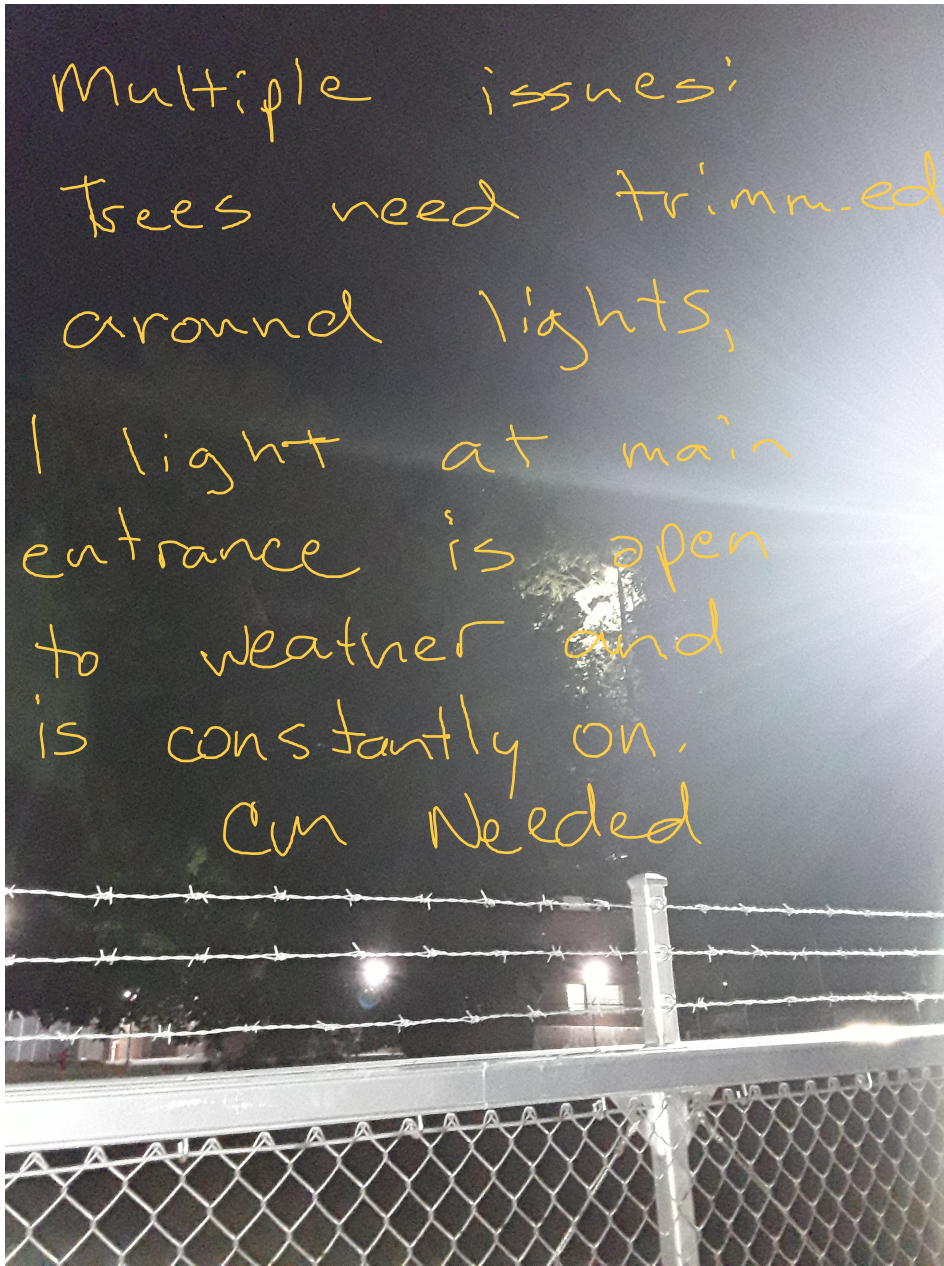 Multiple issues:
Trees need trimmed
around lights,
1 light at main
entrance is open
to weather and
is constantly on.
CM Needed